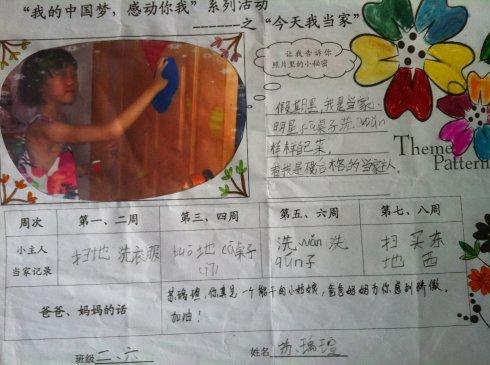 “我的中国梦，感动你我”系列活动
之“今天我当家”
让我告诉你
照片里的小秘密
假期里,我是当家小
明星 cā桌子洗 wǎn
样样自己来，
我是 的当家人。
Theme
Pattern
周次 第一、二周 第三、四周 第五、六周 第七、八周
小主人 扫地 洗衣服 tuō地 cā桌子 洗 wǎn 洗 扫 买东
当家记录 qún子 地 西
爸爸、妈妈的话 苏璃瑄,你真是一个能干的小姑娘,爸爸妈妈为你感到骄傲。
加油！
班级 二、六 姓名 苏璃瑄